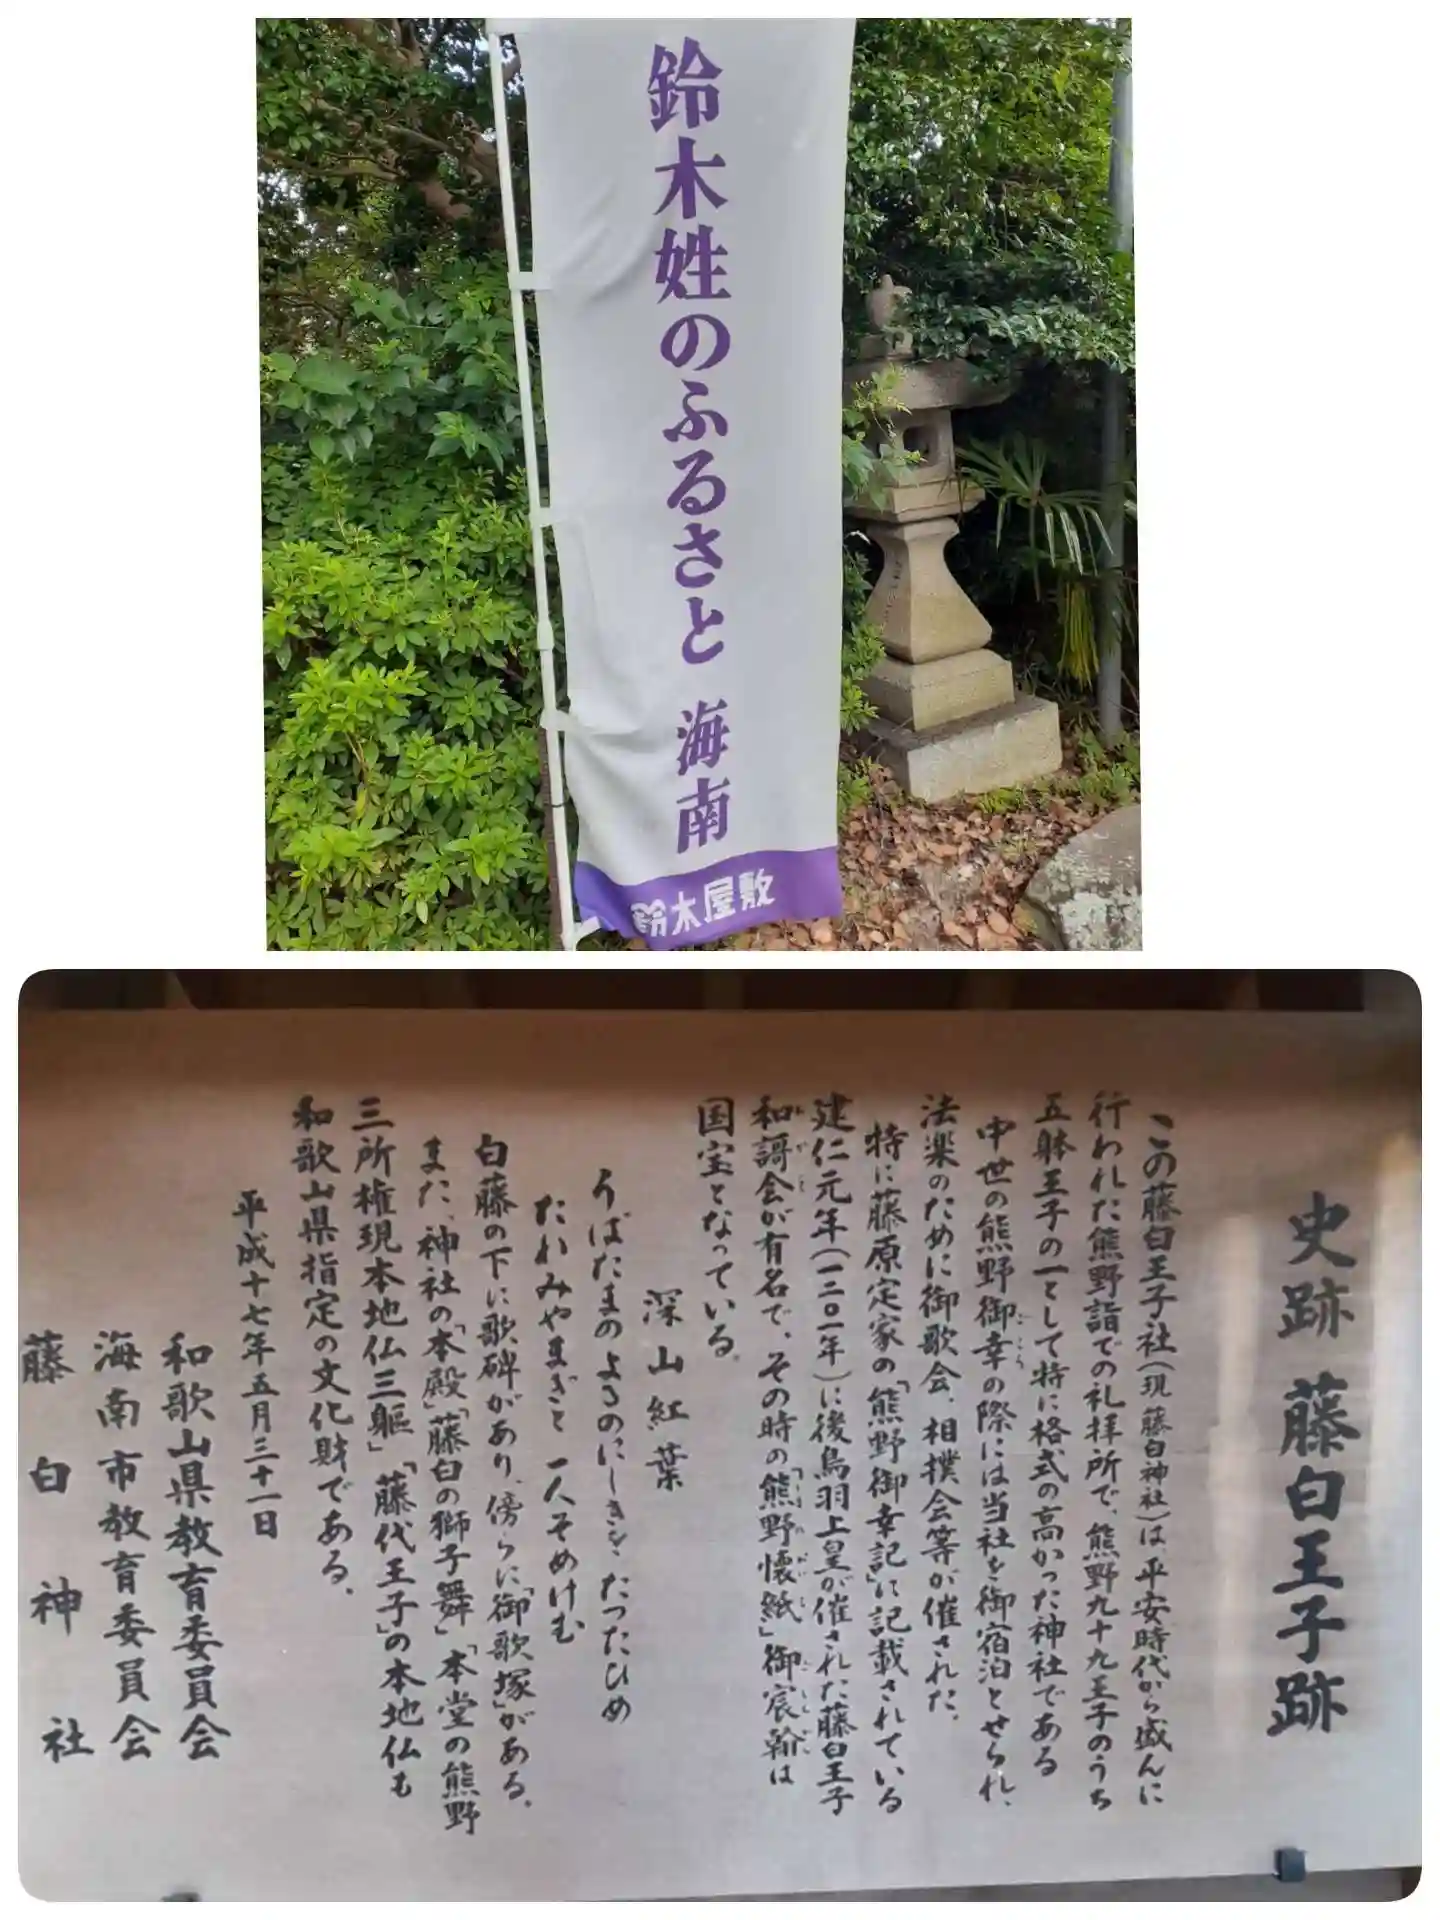 鈴木姓のふるさと 海南
鈴木屋敷
史跡 藤白王子跡
この藤白王子社(現 藤白神社)は、平安時代から盛んに
行われた熊野詣での礼拝所で、熊野九十九王子のうち
五躰王子の一として特に格式の高かった神社である
中世の熊野御幸の際には当社を御宿泊とせられ、
ごこう
法楽のために御歌会、相撲会等が催された。
特に藤原定家の「熊野御幸記」に記載されている
建仁元年(一二〇一年)に後鳥羽上皇が催された藤白王子
和謌会が有名で、その時の「熊野懐紙」御宸翰は
国宝となっている。
深山紅葉
うばたまのよるのにしきをたつたひめ
たれみやまぎと一人そめけむ
白藤の下に歌碑があり、傍らに「御歌塚」がある。
また、神社の「本殿」「藤白の獅子舞」「本堂の熊野
三所権現本地仏三躯」「藤代王子」の本地仏も
和歌山県指定の文化財である。
平成十七年五月三十一日
和歌山県教育委員会
海南市教育委員会
藤白神社